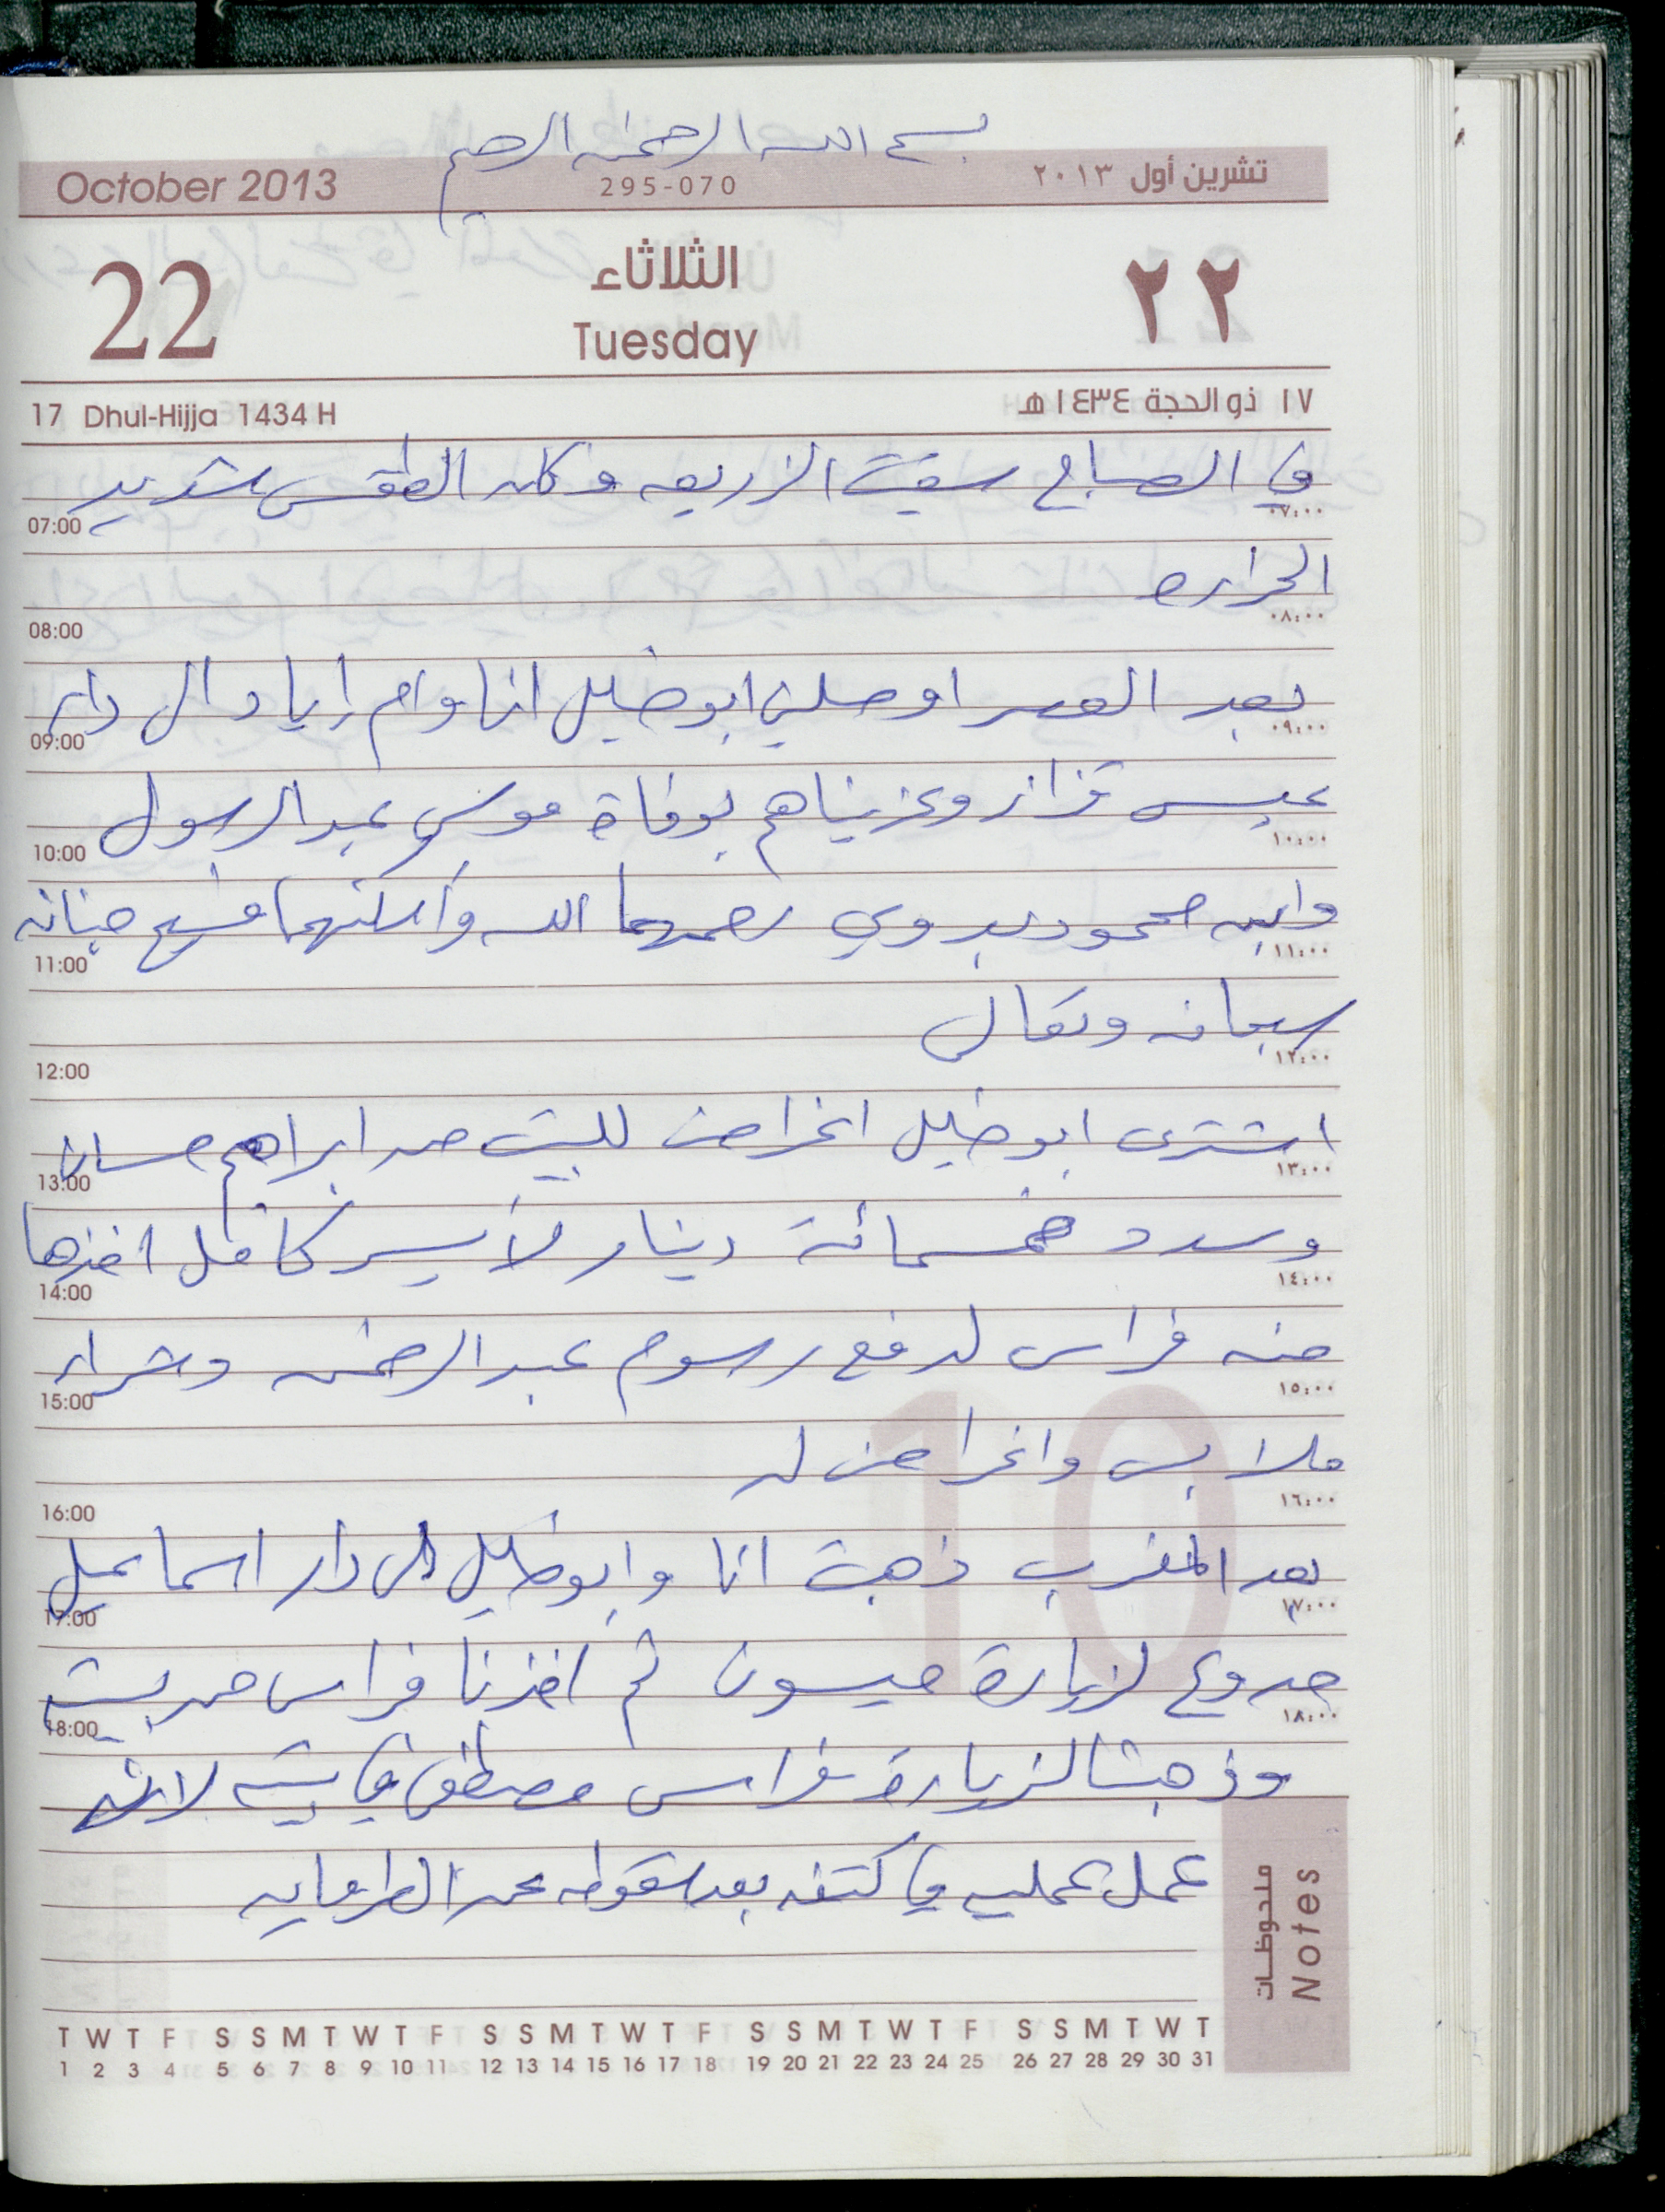 بسم الله الرحمن الرحيم
October 2013 295-070 تشرين أول ٢٠١٣
22 الثلاثاء ٢٢
Tuesday
17 Dhul-Hijja 1434 H ١٧ ذو الحجة ١٤٣٤ هـ
في الصباح سقيت الزريعه وكان الطقس شديد
07:00 ٠٧:٠٠
الحراره
08:00 ٠٨:٠٠
بعد العصر اوصلني ابو خليل انا وام اياد الى دار
09:00 ٠٩:٠٠
عيسى قزاز وعزيناهم بوفاة موسى عبد الرسول
10:00 ١٠:٠٠
وابنه محمود بدوي رحمهما الله واسكنهما فسيح جنانه
11:00 ١١:٠٠
سبحانه وتعالى
12:00 ١٢:٠٠
اشترى ابو خليل اغراض للبيت من ابراهيم حسان
13:00 ١٣:٠٠
وسدد خمسمائة دينار لأيسر كامل اخذها
14:00 ١٤:٠٠
منه فراس لدفع رسوم عبد الرحمن وشراء
15:00 ١٥:٠٠
ملابس واغراض له
16:00 ١٦:٠٠
بعد المغرب ذهبت انا وابو خليل الى دار اسماعيل
17:00 ١٧:٠٠
جدوع لزيارة ميسون ثم اخذنا فراس من بيته
18:00 ١٨:٠٠
وذهبنا لزيارة فراس مصطفى في بيته لانه
عمل عمليه في كتفه بعد سقوطه عن
ملحوظات Notes
T W T F S S M T W T F S S M T W T F S S M T W T F S S M T W T
1 2 3 4 5 6 7 8 9 10 11 12 13 14 15 16 17 18 19 20 21 22 23 24 25 26 27 28 29 30 31
10